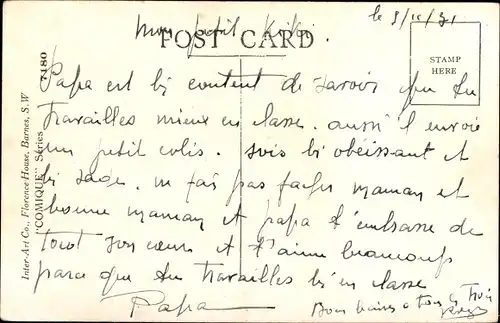 le 9/11/31
Mon petit Kiki.
POST CARD
STAMP
HERE
Papa est bi content de savoir que tu
travailles mieux en classe. aussi il envoie
un petit colis. sois bi obéissant et
bi sage. ne fais pas facher maman et
bonne maman et papa t'embrasse de
tout son coeur et t'aime beaucoup
parce que tu travailles bi en classe
Papa
Bons baisers a tous les trois
Inter-Art Co., Florence House, Barnes, S.W
"COMIQUE" Séries 7180